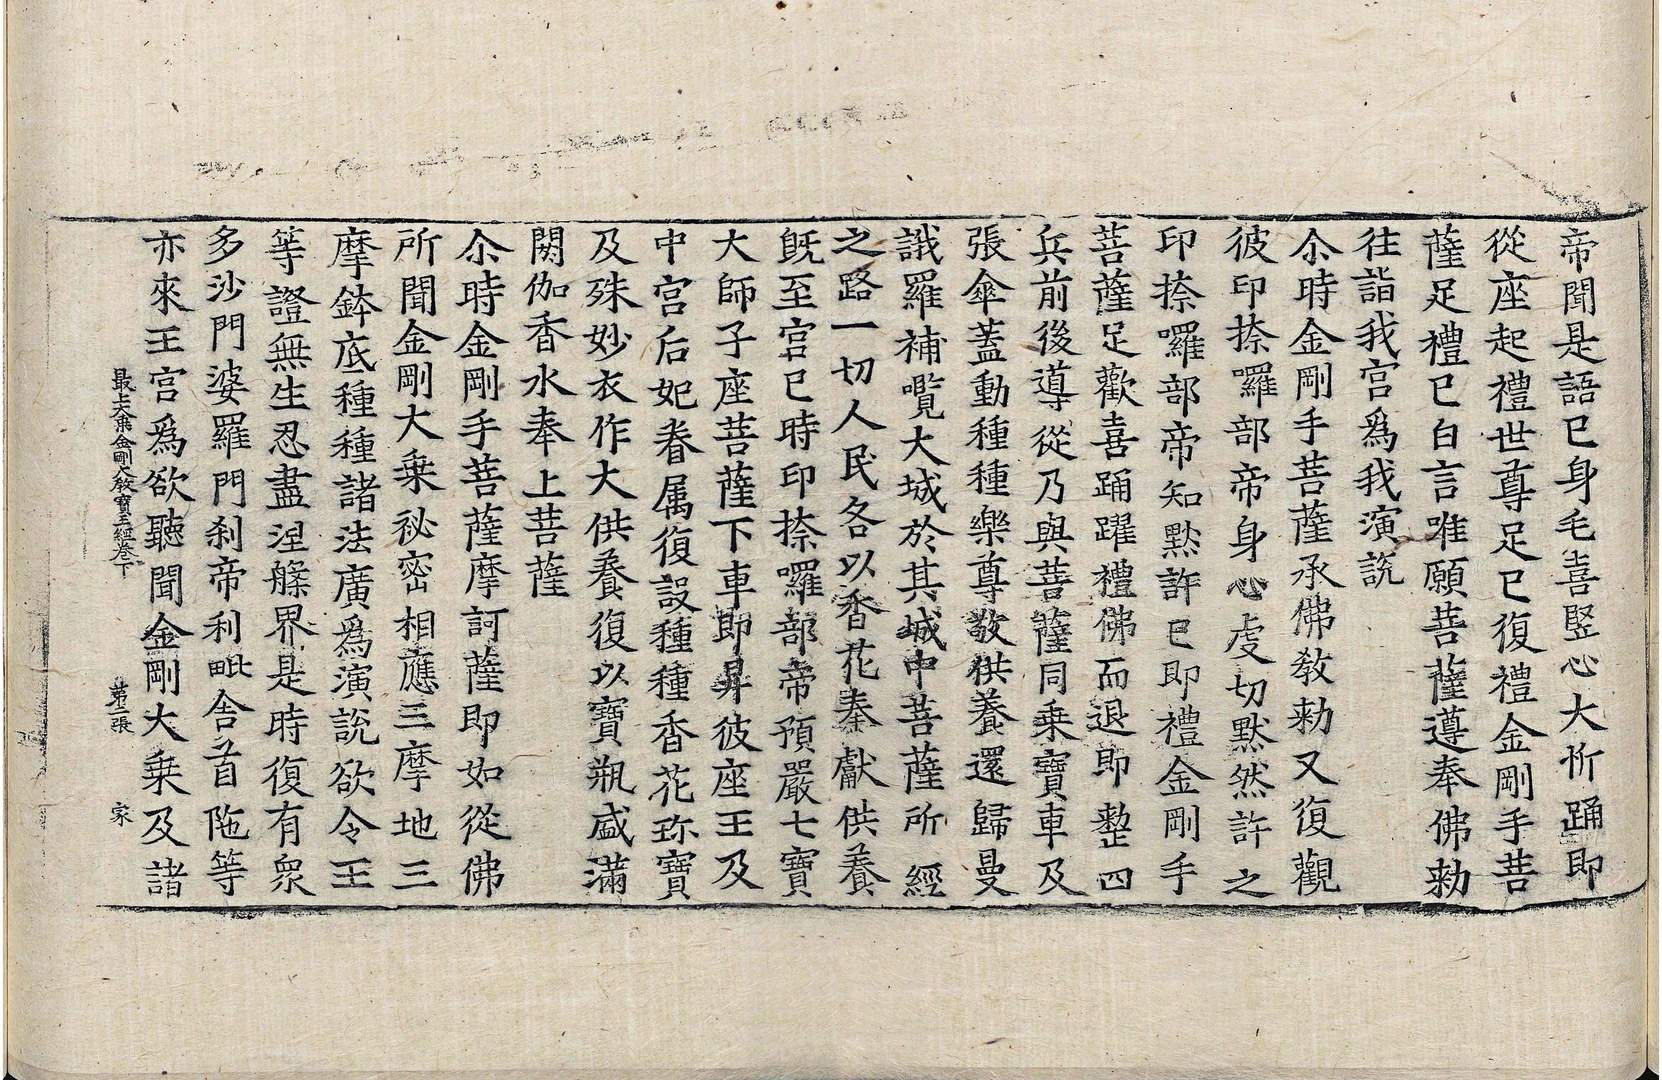 帝聞是語已身毛喜竪心大忻踊即
從座起禮世尊足已復禮金剛手菩
薩足禮已白言唯願菩薩遵奉佛勑
往詣我宫爲我演説
尒時金剛手菩薩承佛敎勑又復觀
彼印捺囉部帝身心虔切默然許之
印捺囉部帝知默許已即禮金剛手
菩薩足歡喜踊躍禮佛而退即整四
兵前後導從乃與菩薩同乗寶車及
張傘蓋動種種樂尊敬供養還歸曼
誐羅補囕大城於其城中菩薩所經
之路一切人民各以香花奉獻供養
既至宫已時印捺囉部帝預嚴七寶
大師子座菩薩下車即昇彼座王及
中宫后妃眷属復設種種香花珎寶
及殊妙衣作大供養復以寶瓶盛滿
閼伽香水奉上菩薩
尒時金剛手菩薩摩訶薩即如從佛
所聞金剛大乗祕密相應三摩地三
摩鉢底種種諸法廣爲演説欲令王
等證無生忍盡涅槃界是時復有衆
多沙門婆羅門刹帝利毗舎首陁等
亦來王宫爲欲聽聞金剛大乗及諸
最上大乗金剛大敎寶王經卷下 第二張 家